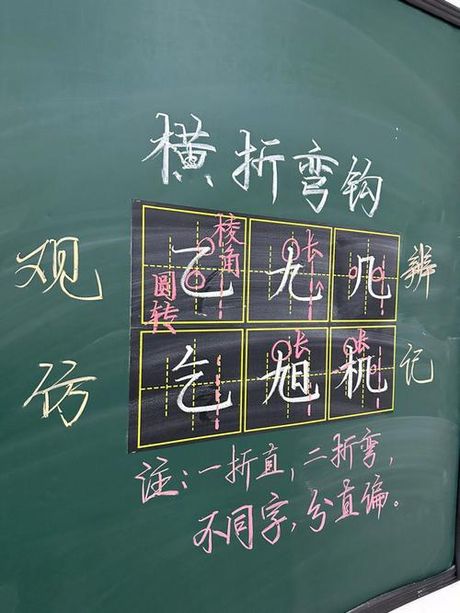 横折弯钩
观
乙 棱角 圆转
九 长
几
辨
仿
乞
旭 长
机 长
记
注:一折直,二折弯,
不同字,分直偏。